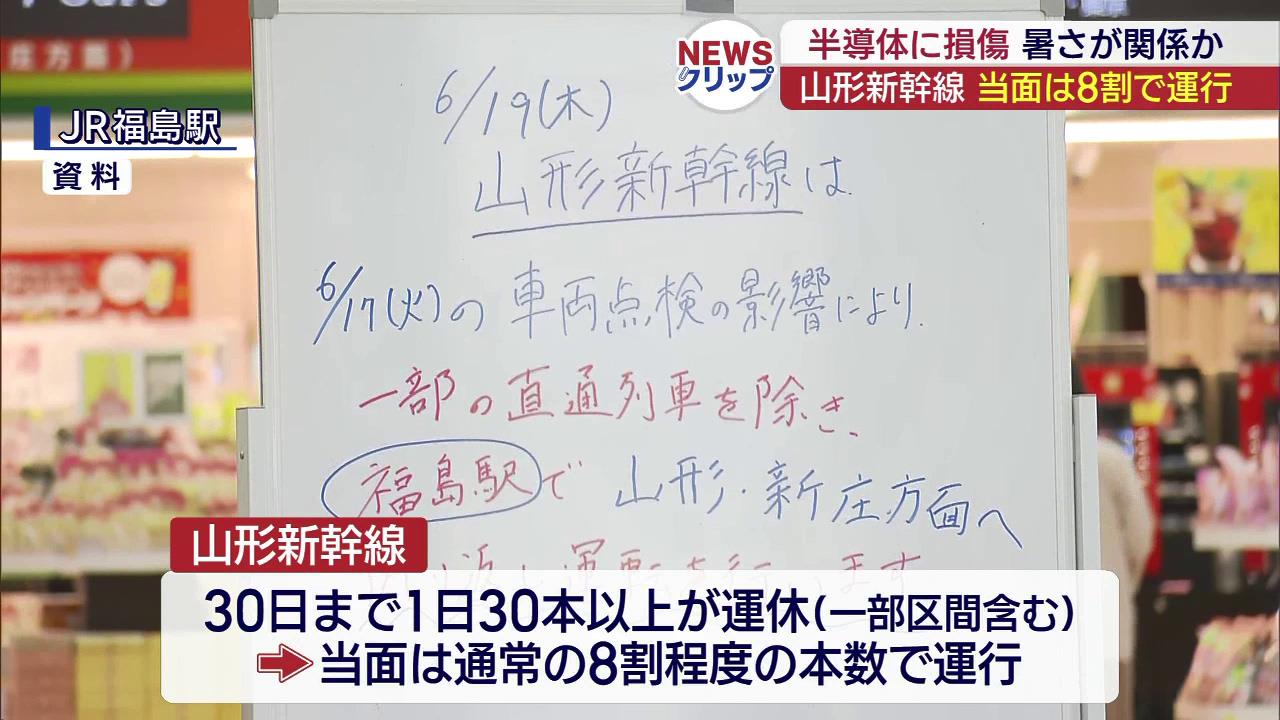 庄方面）
NEWS
クリップ
半導体に損傷 暑さが関係か
山形新幹線 当面は8割で運行
JR福島駅
資料
6/19(木)
山形新幹線は
6/17(火)の車両点検の影響により
一部の直通列車を除き、
福島駅で山形・新庄方面へ
山形新幹線
30日まで1日30本以上が運休(一部区間含む)
➡当面は通常の8割程度の本数で運行